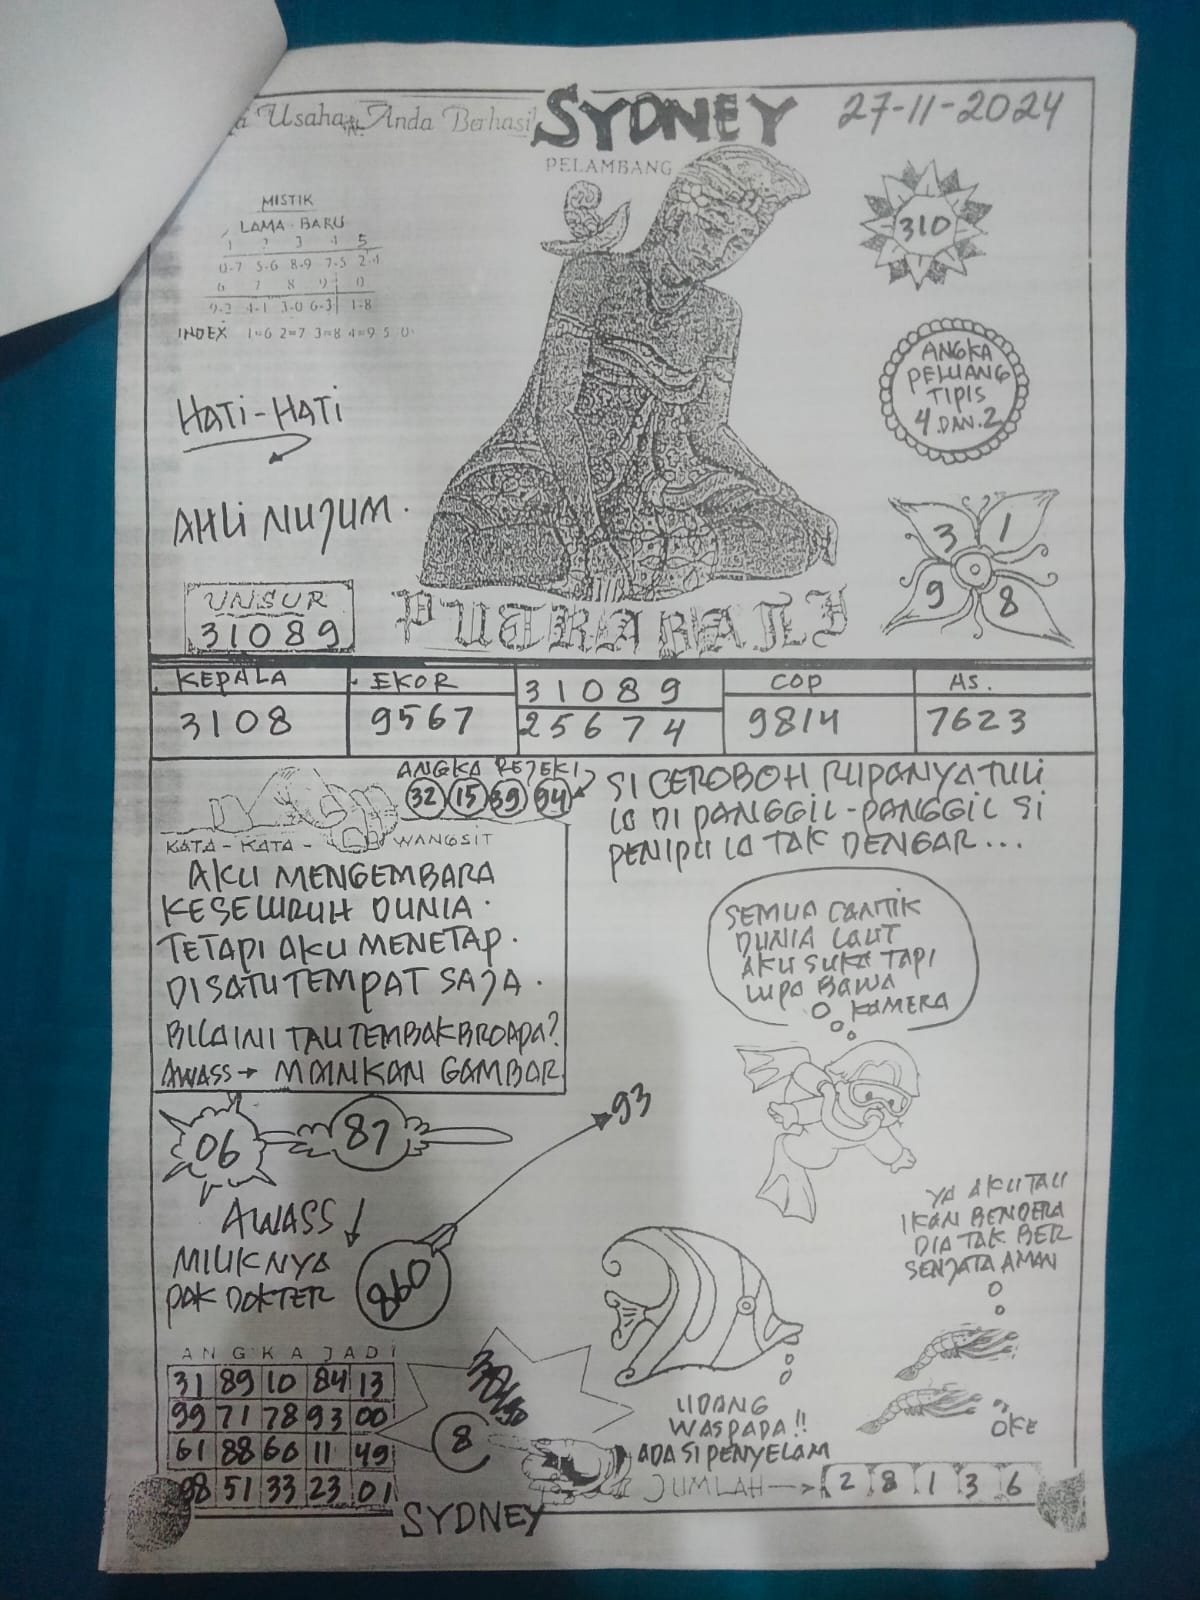 Usaha Anda Berhasil
SYDNEY
27-11-2024
PELAMBANG
MISTIK
LAMA - BARU
1 2 3 4 5
0-7 5-6 8-9 7-5 2-4
6 7 8 9 0
9-2 4-1 3-0 6-3 1-8
INDEX 1=6 2=7 3=8 4=9 5 0
310
HATI-HATI
ANGKA
PELUANG
TIPIS
4 DAN. 2
AHLI NUJUM.
3 1
9 8
UNSUR
31089
PUTRA BALI
KEPALA
3108
EKOR
9567
31089
25674
COP
9814
AS.
7623
ANGKA REJEKI
32 15 39 94
KATA - KATA - WANGSIT
AKU MENGEMBARA
KESELURUH DUNIA.
TETAPI AKU MENETAP.
DISATU TEMPAT SAJA.
BILA INI TAU TEMBAK BROAPA?
AWASS → MAINKAN GAMBAR
SI CEROBOH RUPANYA TULI
LO DI PANGGIL-PANGGIL SI
PENIPU LO TAK DENGAR...
SEMUA CANTIK
DUNIA LAUT
AKU SUKA TAPI
LUPA BAWA
KAMERA
06
87
93
AWASS
MILIKNYA
PAK DOKTER
860
YA AKU TAU
IKAN BENDERA
DIA TAK BER
SENJATA AMAN
ANGKA JADI
31 89 10 84 13
99 71 78 93 00
61 88 60 11 49
98 51 33 23 01
8
UDANG
WASPADA!!
ADA SI PENYELAM
OKE
JUMLAH → 2 8 1 3 6
SYDNEY